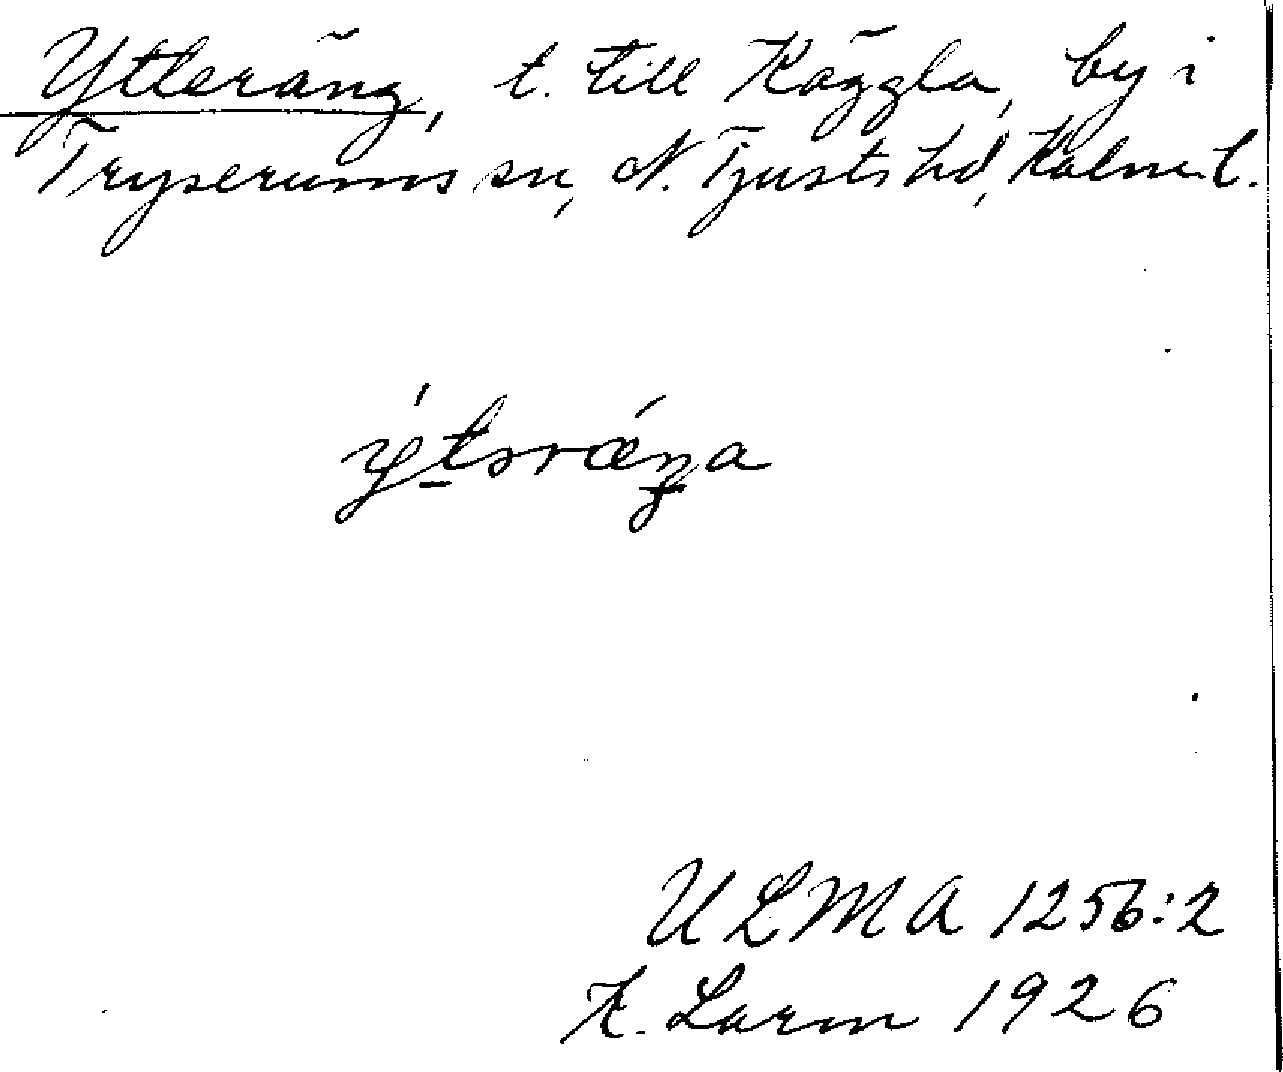 Ytteräng, t. till Käggla, by i
Tryserums sn, N. Tjusts hd, Kalm. l.
ULMA 1256:2
K. Larm 1926